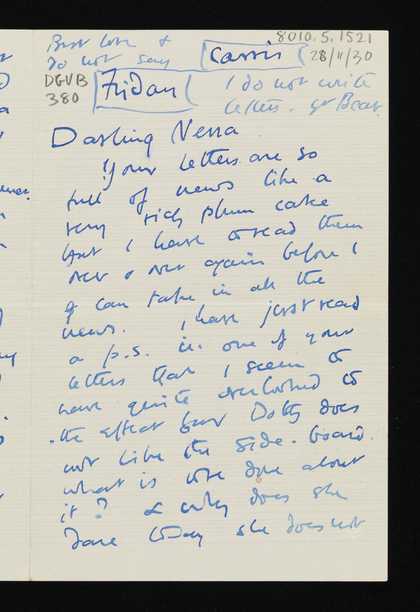 8010.5.1521
Best love &
do not say
Cassis
28/11/30
DGVB
380
Friday
I do not write
letters. yr Bear
Darling Nessa
Your letters are so
full of news like a
very rich plum cake
that I have to read them
over & over again before I
can take in all the
news. I have just read
a p.s. in one of your
letters that I seem to
have quite overlooked to
the effect that Dotty does
not like the side-board.
what is to be done about
it? & why does she
she does not